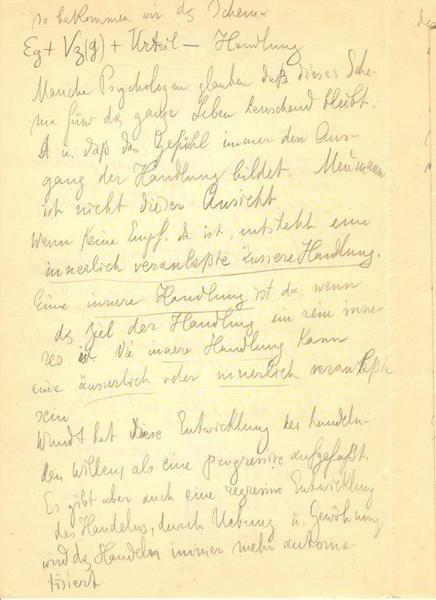 so bekommen wir das Schema
Eg + Vz(g) + Urteil — Handlung
Manche Psychologen glauben daß dieses Sche-
ma fürs das ganze Leben herrschend bleibt.
u. daß das Gefühl immer den Aus-
gang der Handlung bildet. Meumann
ist nicht dieser Ansicht
Wenn keine Empf. da ist, entsteht eine
innerlich veranlaßte äussere Handlung.
Eine innere Handlung ist da wenn
das Ziel der Handlung ein rein inne-
res ist Die innere Handlung kann
eine äusserlich oder innerlich veranlaßte
sein
Wundt hat diese Entwicklung des handeln-
den Willens als eine progressive aufgefaßt.
Es gibt aber auch eine regressive Entwicklung
des Handelns, durch Uebung u. Gewöhnung
wird das Handeln immer mehr automa-
tisiert